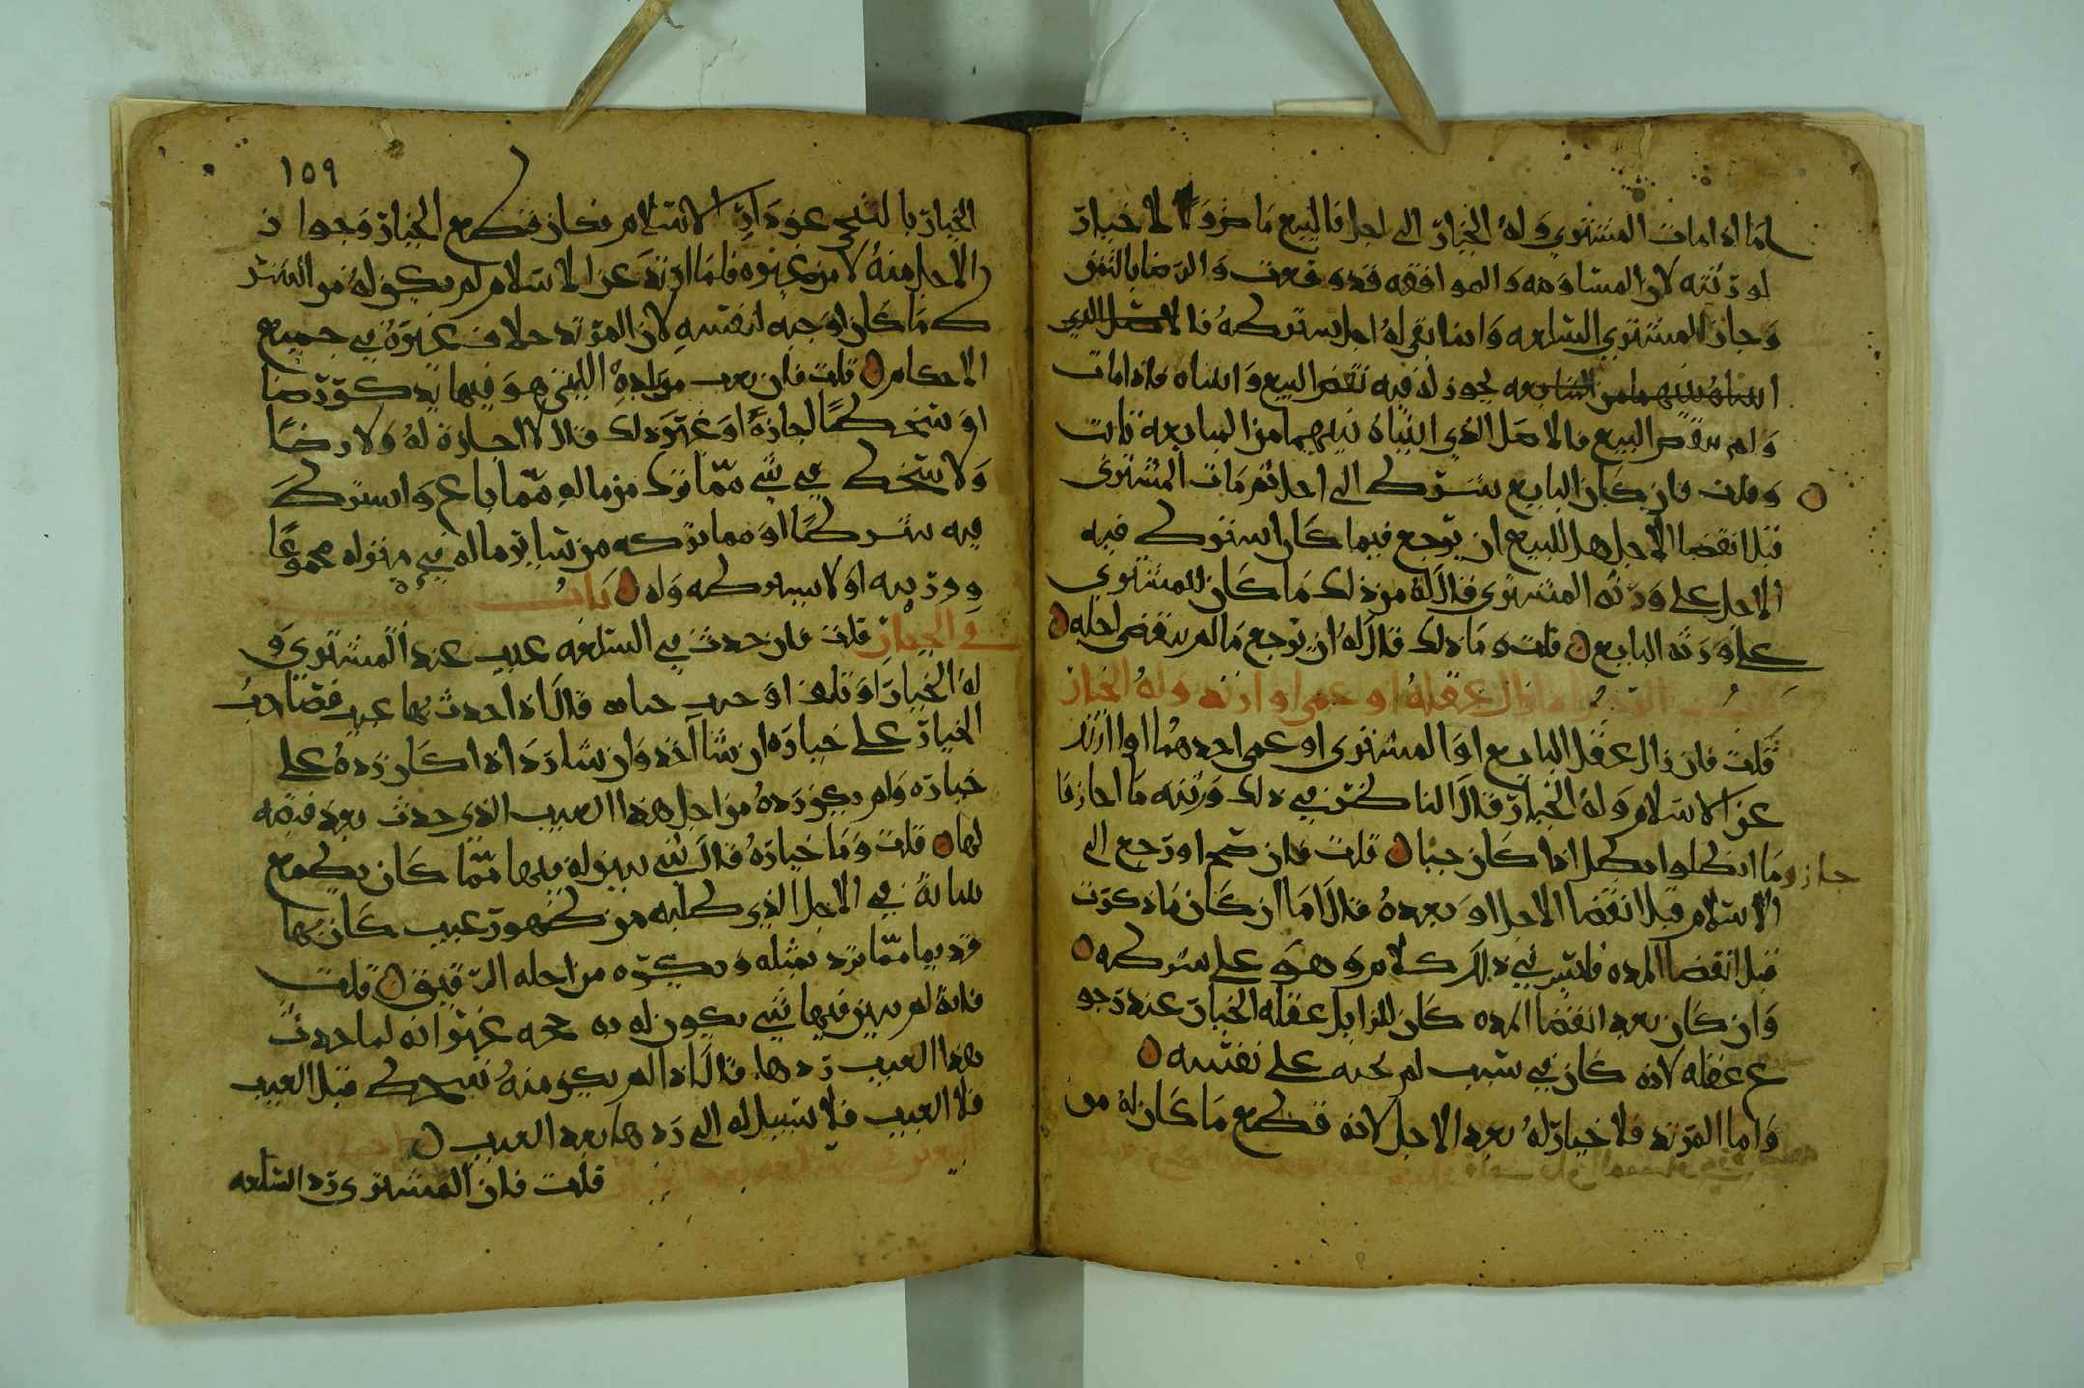 اما اذا مات المشتري وله الخيار الى اجل فالبيع ماض ولا خيار
لورثته لان المساومه والموافقه قد وقعت والرضا بالثمن
وحاز المشتري السلعه وانما بقي له اجل يشترطه فالاصل الذي
يجوز له فيه نقض البيع وانساه فاذا مات
ولم ينقض البيع فالاصل الذي انبياه بينهما من المبايعه ثابت
وقلت فان كان البايع يشترط الى اجل ثم مات المشتري
قبل انقضا الاجل هل للبيع ان يرجع فيما كان استرط فيه
الاجل على ورثه المشتري قال له من ذلك ما كان للمشتري
على ورثه البايع قلت وما ذلك قال له ان يرجع ما لم ينقض اجله
باب القول اذا زال عقله او عمي او ارتد وله الخيار
قلت فان زال عقل البايع او المشتري او عمي احدهما او ارتد
عن الاسلام وله الخيار قال الناظر في ذلك ورثته ما اجازوا
جاز وما ابطلوا بطل اذا كان حيا قلت فان صح او رجع الى
الاسلام قبل انقضا الاجل او بعده قال اما ان كان ما ذكرت
قبل انقضا المده فليس في ذلك كلام وهو على شرطه
وان كان بعد انقضا المده كان للزايل عقله الخيار عند رجو
ع عقله لانه كان في سبب لم يجنه على نفسه
واما المرتد فلا خيار له بعد الاجل لانه قطع ما كان له من
١٥٩
الخيار بالتنحي عن دار الاسلام فكان قطع الخيار وجواز
الاجل منه لا من غيره فلما ارتد عن الاسلام لم يكن له من الشر
ط ما كان اوجبه لنفسه لان المرتد خلاف غيره في جميع
الاحكام قلت فان بعث من بلده التي هو فيها يذكر رضا
او سخطا اجازة او غير ذلك قال لا اجازة له ولا رضا
ولا سخط في شي مما ترك من ماله مما باع واسترط
فيه شرطا او مما تركه من ساير ماله في منزله مجموعا
وورثته اولا بشرطه وله باب
في الخيار قلت فان حدث في السلعه عيب عند المشتري و
له الخيار او تلف او حدث قال اذا حدث بها عيب فصاحب
الخيار على خياره ان شا اخذ وان شا رد اذا كان رده على
خياره ولم يكن رده من اجل هذا العيب الذي حدث بعد قبضه
لها قلت وما خياره قال شي يبين له فيها مما كان يطمع
بيانه في الاجل الذي طلبه من ظهور عيب كان بها
قديما مما ترد بمثله ويكره من اجله الرقيق قلت
فانه لم يبن فيها شي يكون له به حجه غير انه لما حدث
بهذا العيب ردها قال اذا لم يكن منه تسخط قبل العيب
فلا سبيل له الى ردها بعد العيب
قلت فان المشتري رد السلعه